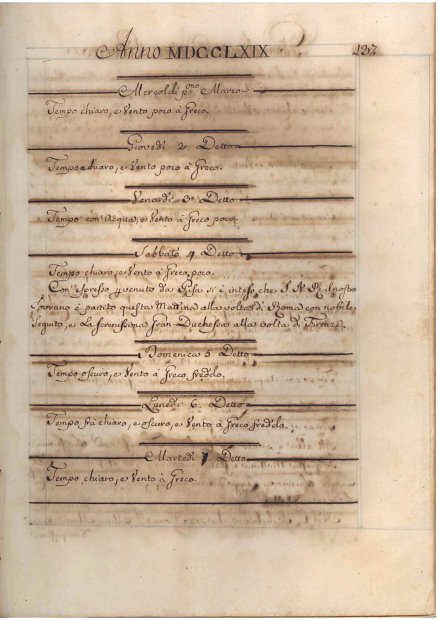 Anno MDCCLXIX 137
Mercoldì p.mo Marzo
Tempo chiaro, e Vento poco à Greco.
Giovedì 2. Detto
Tempo chiaro, e Vento poco à Greco.
Venardì 3. Detto
Tempo con Acqua, e Vento à Greco poco.
Sabbato 4 Detto
Tempo chiaro, e Vento à Greco, poco.
Con Espresso venuto da Pisa si è inteso, che S. A. R. il nostro
Sovrano è partito questa Mattina alla volta di Roma con nobile
Seguito, e La Serenissima Gran-Duchessa alla volta di Firenze.
Domenica 5 Detto
Tempo oscuro, e Vento à Greco freddo.
Lunedì 6 Detto
Tempo frà chiaro, e oscuro, e Vento à Greco freddo.
Martedì 7 Detto
Tempo chiaro, e Vento à Greco.